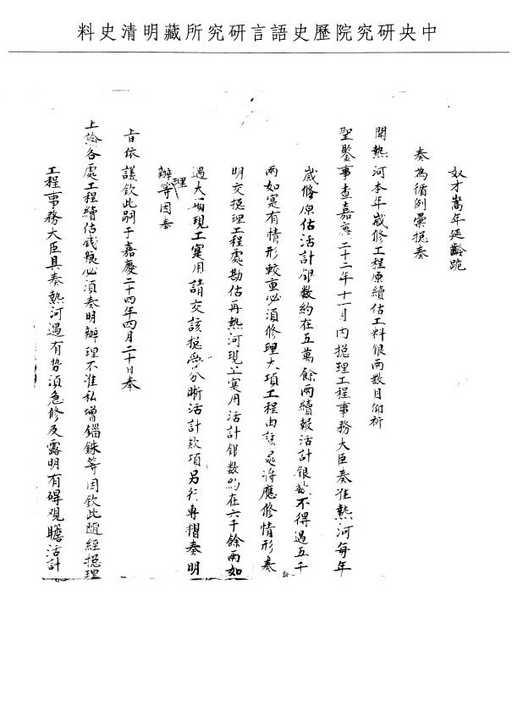 中央研究院歷史語言研究所藏明清史料
奴才嵩年延齡跪
奏為循例彙摠奏
聞熱河本年歲修工程原續估工料銀兩數目仰祈
聖鑒事查嘉慶二十二年十一月內摠理工程事務大臣奏准熱河每年
歲修原估活計銀數約在五萬餘兩續估活計銀數不得過五千
兩如寔有情形較重必須修理大項工程由該將應修情形奏
明交摠理工程處勘估再熱河現工寔用活計銀數約在六千餘兩如
過大項現工寔用請交該摠管分晰活計款項另行專摺奏明
辦理等因奏
旨依議欽此嗣于嘉慶二十四年四月二十日奉
上諭各處工程續估錢糧必須奏明辦理不准私增錙銖等因欽此隨經摠理
工程事務大臣具奏熱河遇有勢須急修及露明有碍觀瞻活計